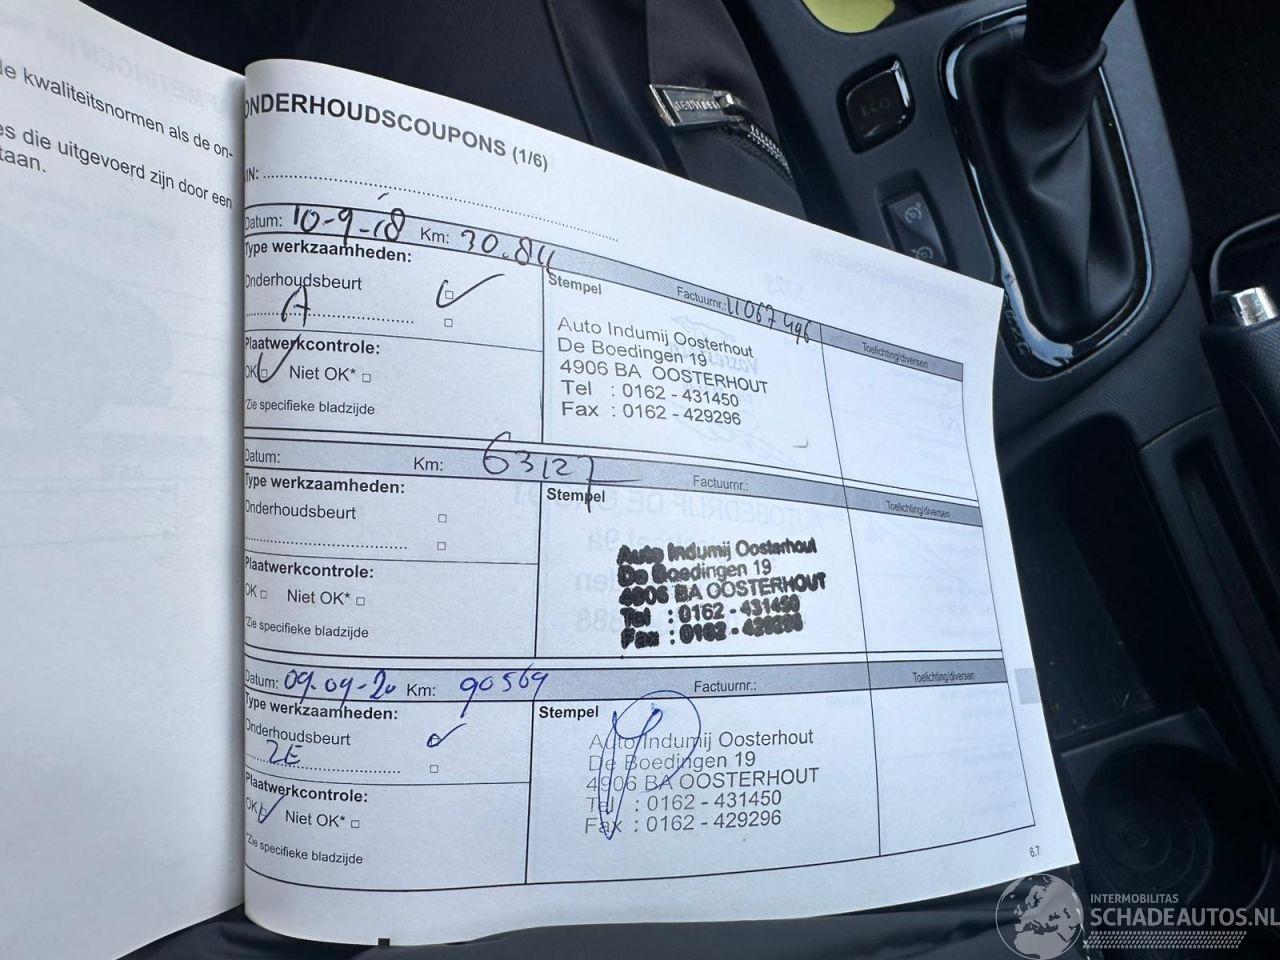 de kwaliteitsnormen als de on-
es die uitgevoerd zijn door een
taan.
ONDERHOUDSCOUPONS (1/6)
VIN:
Datum: 10-9-18 Km: 30.84 Factuurnr.: 11067496 Toelichting/diversen
Type werkzaamheden:
Onderhoudsbeurt
A
Plaatwerkcontrole:
OK Niet OK*
*Zie specifieke bladzijde
Stempel
Auto Indumij Oosterhout
De Boedingen 19
4906 BA OOSTERHOUT
Tel : 0162 - 431450
Fax : 0162 - 429296
Datum: Km: 63127 Factuurnr.: Toelichting/diversen
Type werkzaamheden:
Onderhoudsbeurt
Plaatwerkcontrole:
OK Niet OK*
*Zie specifieke bladzijde
Stempel
Auto Indumij Oosterhout
De Boedingen 19
4906 BA OOSTERHOUT
Tel : 0162 - 431450
Fax : 0162 - 429296
Datum: 09-09-20 Km: 90569 Factuurnr.: Toelichting/diversen
Type werkzaamheden:
Onderhoudsbeurt
2E
Plaatwerkcontrole:
OK Niet OK*
*Zie specifieke bladzijde
Stempel
Auto Indumij Oosterhout
De Boedingen 19
4906 BA OOSTERHOUT
Tel : 0162 - 431450
Fax : 0162 - 429296
6.7
ECO
INTERMOBILITAS
SCHADEAUTOS.NL